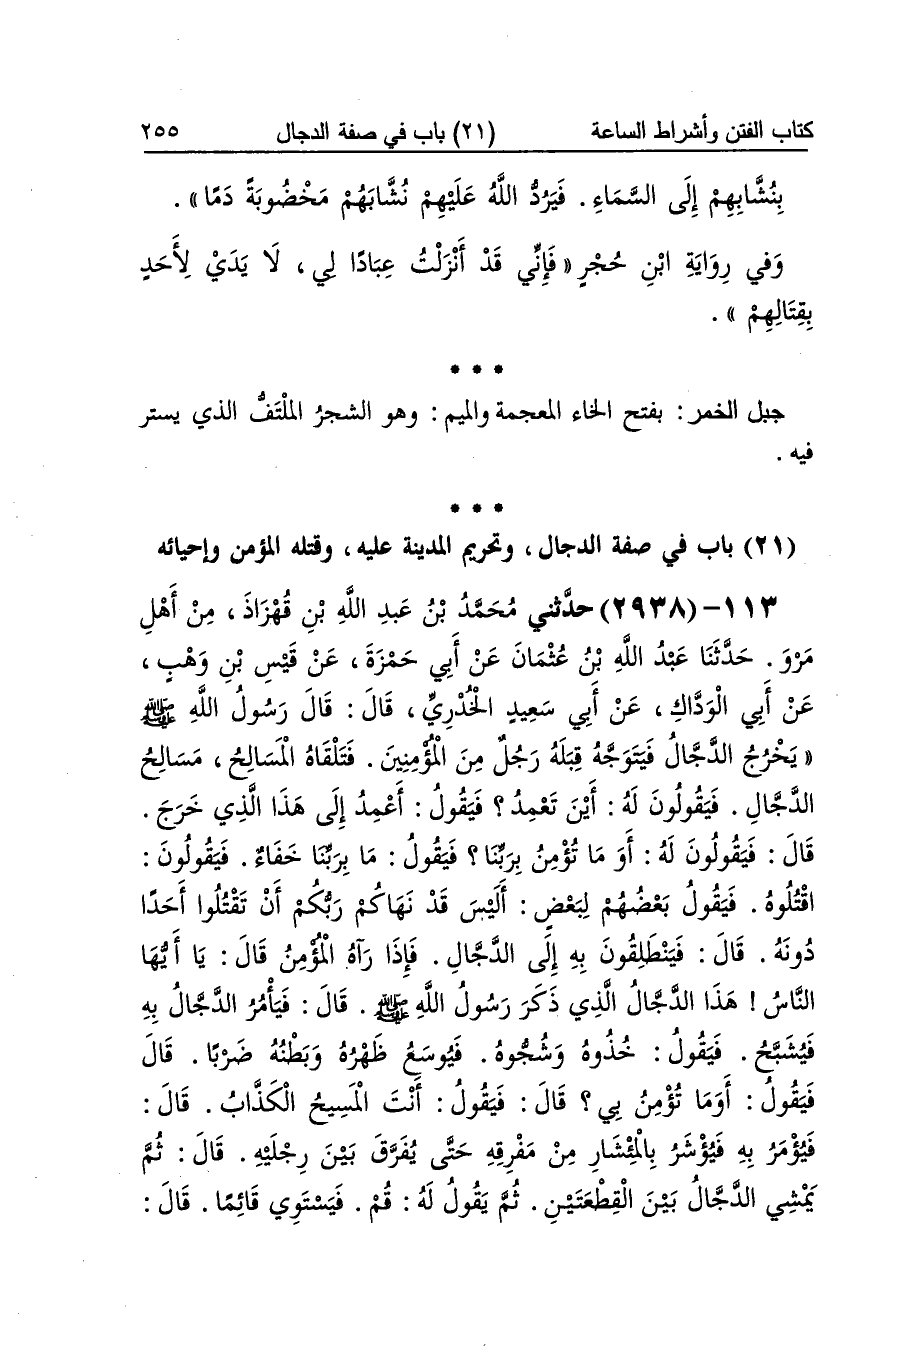 كتاب الفتن وأشراط الساعة (٢١) باب في صفة الدجال ٢٥٥
بِنُشَّابِهِمْ إِلَى السَّمَاءِ . فَيَرُدُّ اللَّهُ عَلَيْهِمْ نُشَّابَهُمْ مَخْضُوبَةً دَمًا » .
وَفي رِوَايَةِ ابْنِ حُجْرٍ « فَإِنِّي قَدْ أَنْزَلْتُ عِبَادًا لِي ، لَا يَدَيْ لِأَحَدٍ
بِقِتَالِهِمْ » .
* * *
جبل الخمر : بفتح الخاء المعجمة والميم : وهو الشجرُ الملْتَفُّ الذي يستر
فيه .
* * *
(٢١) باب في صفة الدجال ، وتحريم المدينة عليه ، وقتله المؤمن وإحيائه
١١٣- (٢٩٣٨) حدَّثني مُحَمَّدُ بْنُ عَبدِ اللَّهِ بْنِ قُهْزَاذَ ، مِنْ أَهْلِ
مَرْوَ . حَدَّثَنَا عَبْدُ اللَّهِ بْنُ عُثْمَانَ عَنْ أَبِي حَمْزَةَ ، عَنْ قَيْسِ بْنِ وَهْبٍ ،
عَنْ أَبِي الْوَدَّاكِ ، عَنْ أَبِي سَعِيدٍ الْخُدْرِيِّ ، قَالَ : قَالَ رَسُولُ اللَّهِ ﷺ
« يَخْرُجُ الدَّجَّالُ فَيَتَوَجَّهُ قِبَلَهُ رَجُلٌ مِنَ الْمُؤْمِنِينَ . فَتَلْقَاهُ الْمَسَالِحُ ، مَسَالِحُ
الدَّجَّالِ . فَيَقُولُونَ لَهُ : أَيْنَ تَعْمِدُ ؟ فَيَقُولُ : أَعْمِدُ إِلَى هَذَا الَّذِي خَرَجَ .
قَالَ : فَيَقُولُونَ لَهُ : أَوَ مَا تُؤْمِنُ بِرَبِّنَا ؟ فَيَقُولُ : مَا بِرَبِّنَا خَفَاءٌ . فَيَقُولُونَ :
اقْتُلُوهُ . فَيَقُولُ بَعْضُهُمْ لِبَعْضٍ : أَلَيْسَ قَدْ نَهَاكُمْ رَبُّكُمْ أَنْ تَقْتُلُوا أَحَدًا
دُونَهُ . قَالَ : فَيَنْطَلِقُونَ بِهِ إِلَى الدَّجَّالِ . فَإِذَا رَآهُ الْمُؤْمِنُ قَالَ : يَا أَيُّهَا
النَّاسُ ! هَذَا الدَّجَّالُ الَّذِي ذَكَرَ رَسُولُ اللَّهِ ﷺ . قَالَ : فَيَأْمُرُ الدَّجَّالُ بِهِ
فَيُشَبَّحُ . فَيَقُولُ : خُذُوهُ وَشُجُّوهُ . فَيُوسَعُ ظَهْرُهُ وَبَطْنُهُ ضَرْبًا . قَالَ
فَيَقُولُ : أَوَمَا تُؤْمِنُ بِي ؟ قَالَ : فَيَقُولُ : أَنْتَ الْمَسِيحُ الْكَذَّابُ . قَالَ :
فَيُؤْمَرُ بِهِ فَيُؤْشَرُ بِالْمِئْشَارِ مِنْ مَفْرِقِهِ حَتَّى يُفَرَّقَ بَيْنَ رِجْلَيْهِ . قَالَ : ثُمَّ
يَمْشِي الدَّجَّالُ بَيْنَ الْقِطْعَتَيْنِ . ثُمَّ يَقُولُ لَهُ : قُمْ . فَيَسْتَوِي قَائِمًا . قَالَ :